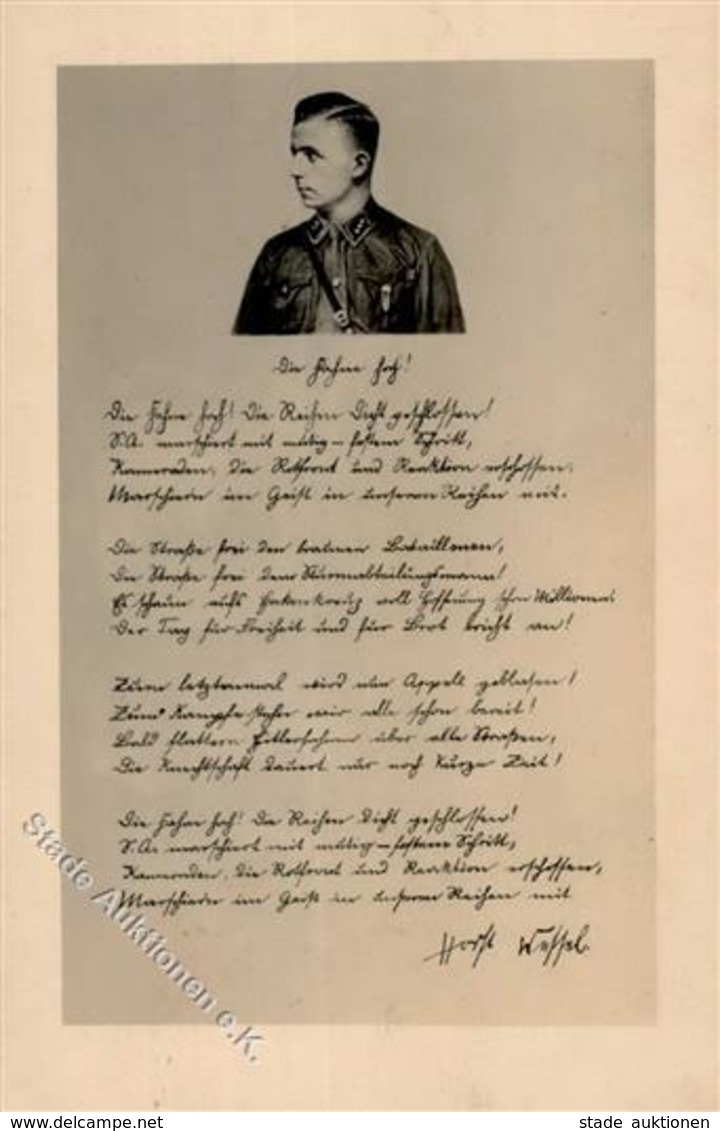 Die Fahne hoch!
Die Fahne hoch! Die Reihen dicht geschlossen!
S.A. marschiert mit mutig-festem Schritt,
Kameraden, die Rotfront und Reaktion erschossen,
Marschiern im Geist in unseren Reihen mit.
Die Straße frei den braunen Bataillonen,
Die Straße frei dem Sturmabteilungsmann!
Es schaun aufs Hakenkreuz voll Hoffnung schon Millionen.
Der Tag für Freiheit und für Brot bricht an!
Zum letztenmal wird nun Appell geblasen!
Zum Kampfe stehn wir alle schon bereit!
Bald flattern Hitlerfahnen über alle Straßen,
Die Knechtschaft dauert nur noch kurze Zeit!
Die Fahne hoch! Die Reihen dicht geschlossen!
S.A. marschiert mit mutig-festem Schritt,
Kameraden, die Rotfront und Reaktion erschossen,
Marschiern im Geist in unseren Reihen mit
Horst Wessel.
Stade Auktionen e.K.
www.delcampe.net
stade auktionen